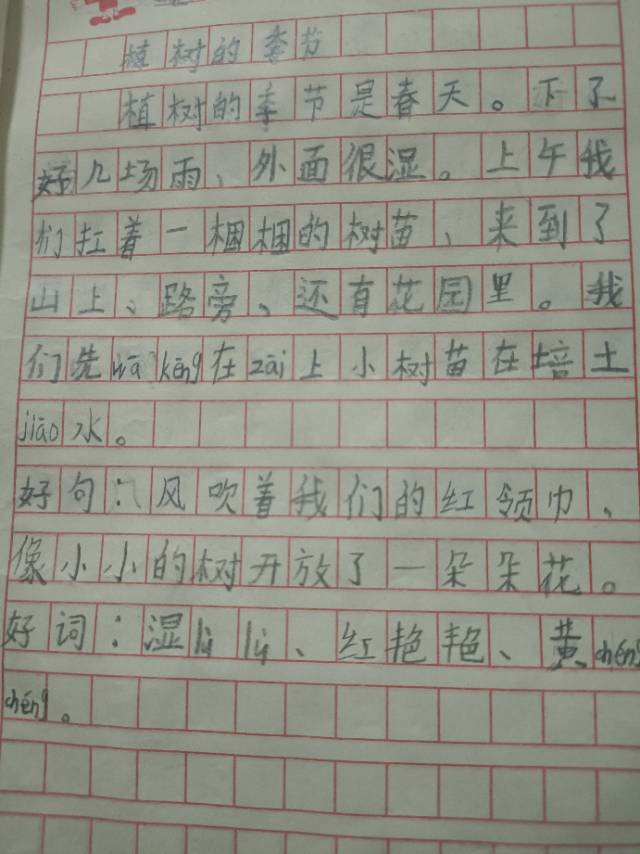 植树的季节
植树的季节是春天。下了
好几场雨、外面很湿。上午我
们扛着一梱梱的树苗、来到了
山上、路旁、还有花园里。我
们先wā kēng在zāi上小树苗在培土
jiāo水。
好句：风吹着我们的红领巾、
像小小的树开放了一朵朵花。
好词：湿lù lù、红艳艳、黄chéng
chéng。